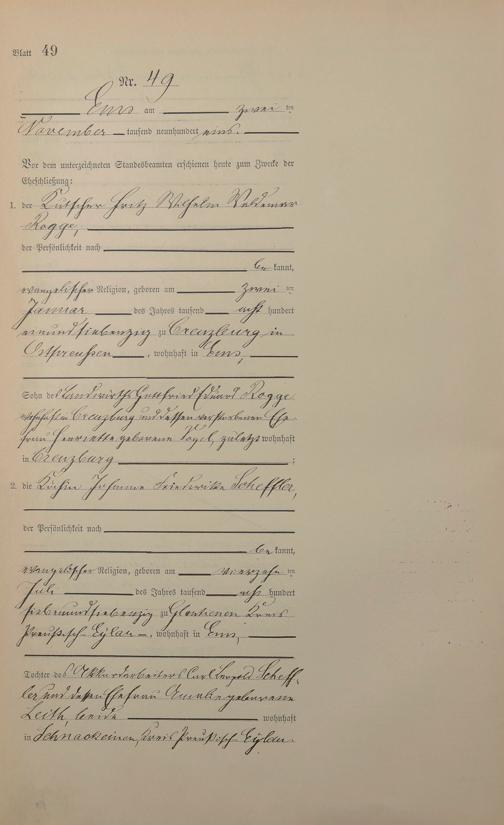 Blatt 49
Nr. 49
Ems am zwei ten
November tausend neunhundert eins.
Vor dem unterzeichneten Standesbeamten erschienen heute zum Zwecke der
Eheschließung:
1. der Kutscher Fritz Wilhelm Waldemar
Rogge,
der Persönlichkeit nach
be kannt,
evangelischer Religion, geboren am zwei ten
Januar des Jahres tausend acht hundert
neunundsiebenzig zu Creuzburg in
Ostpreußen, wohnhaft in Ems,
Sohn des Landwirths Gottfried Eduard Rogge
wohnhaft in Creuzburg und dessen verstorbenen Ehe
frau Henriette geborene Vogel, zuletzt wohnhaft
in Creuzburg ;
2. die Köchin Johanne Friederike Scheffler,
der Persönlichkeit nach
be kannt,
evangelischer Religion, geboren am vierzehn ten
Juli des Jahres tausend acht hundert
siebenundsiebenzig zu Kreis
Preußisch Eylau, wohnhaft in Ems,
Tochter des Carl Leopold Scheff-
ler und dessen Ehefrau Amalie geborene
Leith, beide wohnhaft
in Schnackeinen, Kreis Preußisch Eylau.